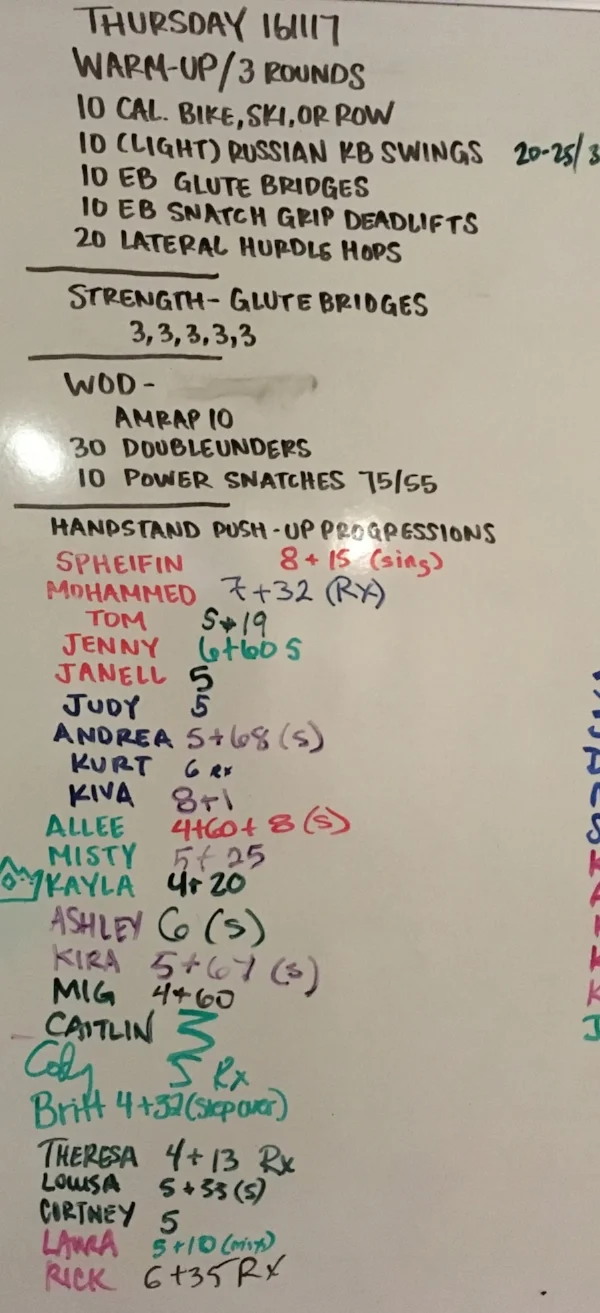 THURSDAY 161117
WARM-UP/3 ROUNDS
10 CAL. BIKE, SKI, OR ROW
10 (LIGHT) RUSSIAN KB SWINGS 20-25/3
10 EB GLUTE BRIDGES
10 EB SNATCH GRIP DEADLIFTS
20 LATERAL HURDLE HOPS
STRENGTH- GLUTE BRIDGES
3,3,3,3,3
WOD-
AMRAP 10
30 DOUBLEUNDERS
10 POWER SNATCHES 75/55
HANDSTAND PUSH-UP PROGRESSIONS
SPHEIFIN 8+15 (sing)
MOHAMMED 7+32 (RX)
TOM 5+19
JENNY 6+60 S
JANELL 5
JUDY 5
ANDREA 5+68 (S)
KURT 6 RX
KIVA 8+1
ALLEE 4+60+8 (S)
MISTY 5+25
KAYLA 4+20
ASHLEY 6 (S)
KIRA 5+67 (S)
MIG 4+60
CAITLIN
Cody 5 Rx
Britt 4+32 (Stepover)
THERESA 4+13 Rx
LOUISA 5+33 (S)
CORTNEY 5
LAURA 5+10 (mix)
RICK 6+35 RX